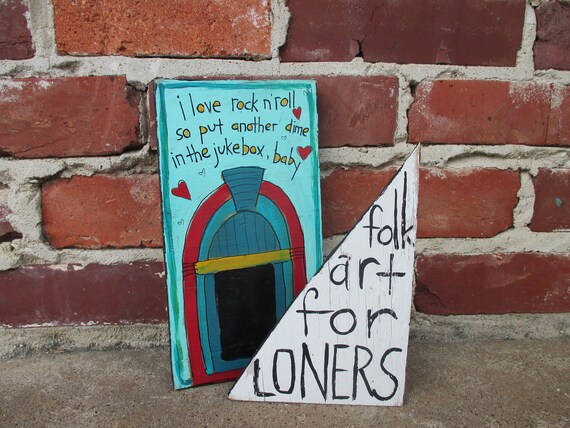 i love rock n'roll,
so put another dime
in the jukebox, baby
folk
art
for
LONERS